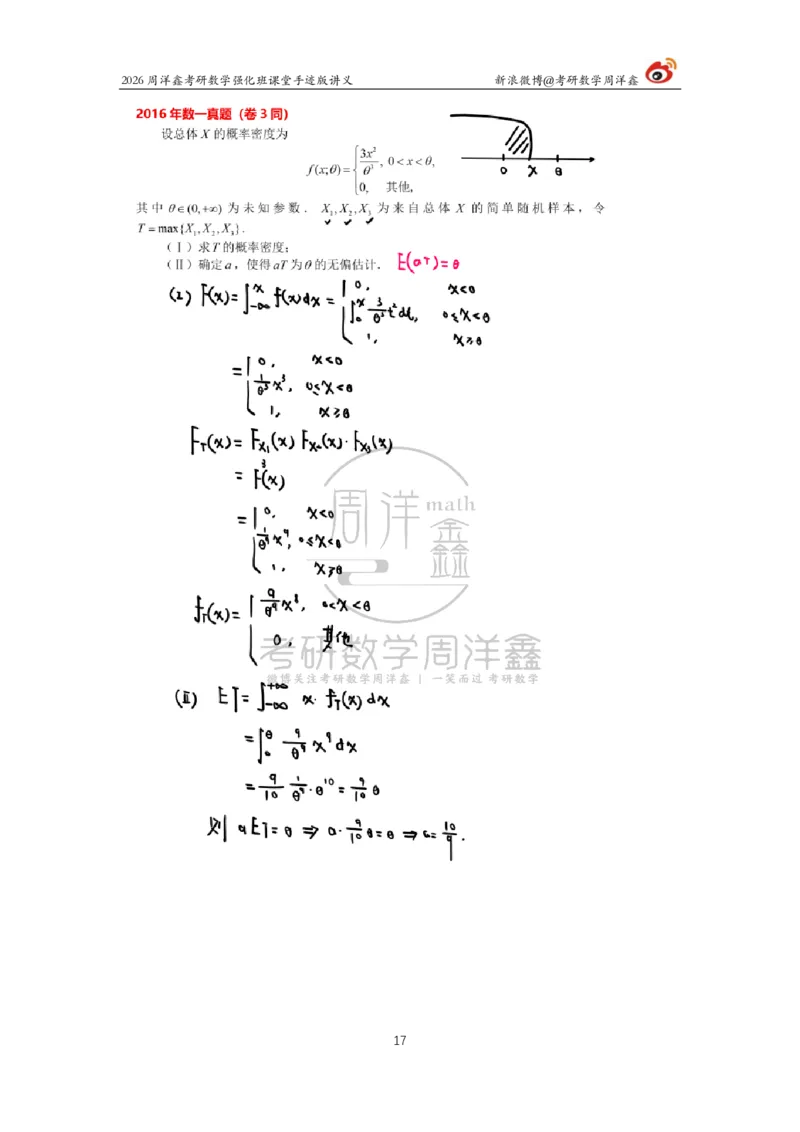 2026周洋鑫考研数学强化班课堂手迹版讲义 新浪微博@考研数学周洋鑫
2016年数一真题（卷3同）
设总体 X 的概率密度为
f(x;θ)={3x²/θ³, 0<x<θ,
0, 其他,
0 x θ
其中 θ∈(0,+∞) 为未知参数．X₁,X₂,X₃ 为来自总体 X 的简单随机样本，令
T=max{X₁,X₂,X₃}.
（Ⅰ）求T的概率密度；
（Ⅱ）确定a，使得aT为θ的无偏估计． E(aT)=θ
(I) F(x)=∫_{-∞}^{x} f(x)dx = { 0, x<0
∫_0^x 3/θ³ t²dt, 0≤x<θ
1, x≥θ
= { 0, x<0
1/θ³ x³, 0≤x<θ
1, x≥θ
F_T(x)= F_{X₁}(x) F_{X₂}(x)·F_{X₃}(x)
= F³(x)
= { 0, x<0
1/θ⁹ x⁹, 0≤x<θ
1, x≥θ
f_T(x)= { 9/θ⁹ x⁸, 0<x<θ
0, 其他
(Ⅱ) ET=∫_{-∞}^{+∞} x·f_T(x)dx
=∫_0^θ 9/θ⁹ x⁹dx
= 9/10 1/θ⁹·θ¹⁰= 9/10 θ
则 aET=θ ⇒ a·9/10 θ=θ ⇒ a=10/9.
周洋鑫math
考研数学周洋鑫
微博关注考研数学周洋鑫 | 一笑而过 考研数学
17